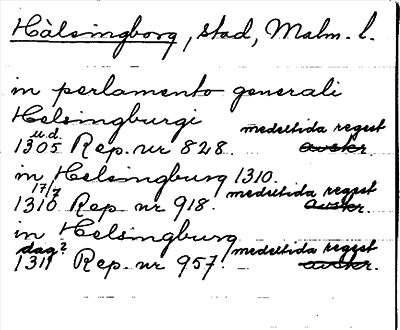 Hälsingborg, stad, Malm. l.
in parlamento generali
Helsingburgi
u.d. medeltida regest
1305 Rep. nr 828. avskr.
in Helsingburg 1310.
17/7 medeltida regest
1310 Rep nr 918. avskr.
in Helsingburg
dag? medeltida regest
1311 Rep. nr 957. avskr.